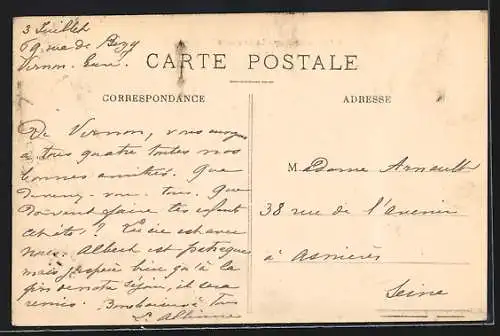 3 Juillet
69 rue de Bizy
Vernon. Eure.
CARTE POSTALE
CORRESPONDANCE
ADRESSE
De Vernon, vous envoyons
à tous quatre toutes nos
bonnes amitiés. Que
devenez-vous tous. Que
doivent faire les enfants
cet été ? est avec
nous. Albert est
mais j'espère bien qu'à la
fin de notre séjour, il sera
remis. Bons baisers à tous
Madame Arnault
38 rue de l'Avenir
à Asnières
Seine